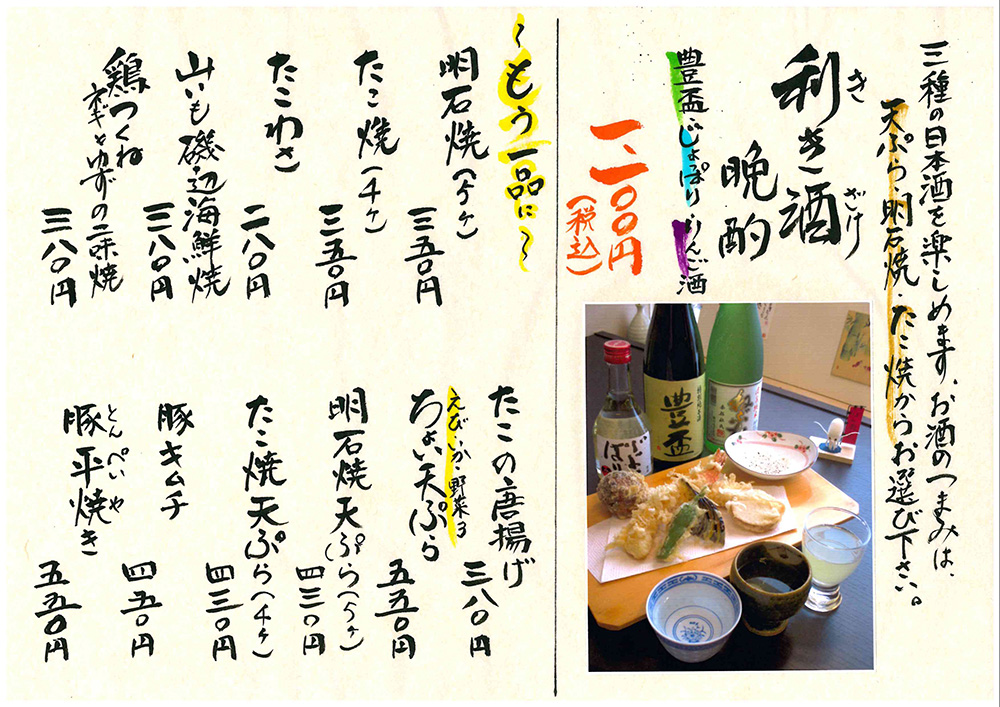 三種の日本酒を楽しめます、お酒のつまみは、
天ぷら・明石焼・たこ焼からお選び下さい。
利き酒
き
ざけ
晩酌
豊盃・じょっぱり・りんご酒
一、二〇〇円
(税込)
豊盃
〜もう一品に〜
明石焼(5ヶ)
三五〇円
たこ焼(4ヶ)
三五〇円
たこわさ
二八〇円
山いも磯辺海鮮焼
三八〇円
鶏つくね
ネギとゆずの二味焼
三八〇円
たこの唐揚げ
三八〇円
えび・いか・野菜3
ちょい天ぷら
五五〇円
明石焼天ぷら(5ヶ)
四三〇円
たこ焼天ぷら(4ヶ)
四三〇円
豚キムチ
四五〇円
とんぺいや
豚平焼き
五五〇円